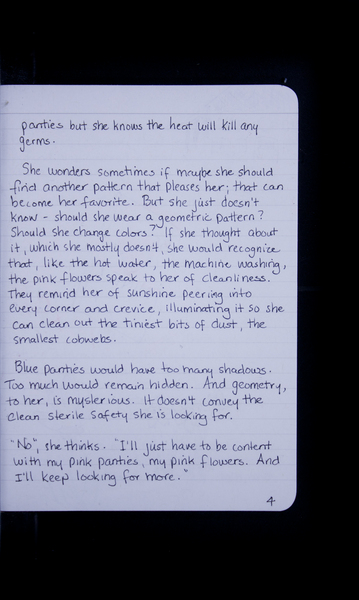 panties but she knows the heat will kill any
germs.
She wonders sometimes if maybe she should
find another pattern that pleases her; that can
become her favorite. But she just doesn't
know - should she wear a geometric pattern?
Should she change colors? If she thought about
it, which she mostly doesn't, she would recognize
that, like the hot water, the machine washing,
the pink flowers speak to her of cleanliness.
They remind her of sunshine peering into
every corner and crevice, illuminating it so she
can clean out the tiniest bits of dust, the
smallest cobwebs.
Blue panties would have too many shadows.
Too much would remain hidden. And geometry,
to her, is mysterious. It doesn't convey the
clean sterile safety she is looking for.
"No", she thinks. "I'll just have to be content
with my pink panties, my pink flowers. And
I'll keep looking for more."
4